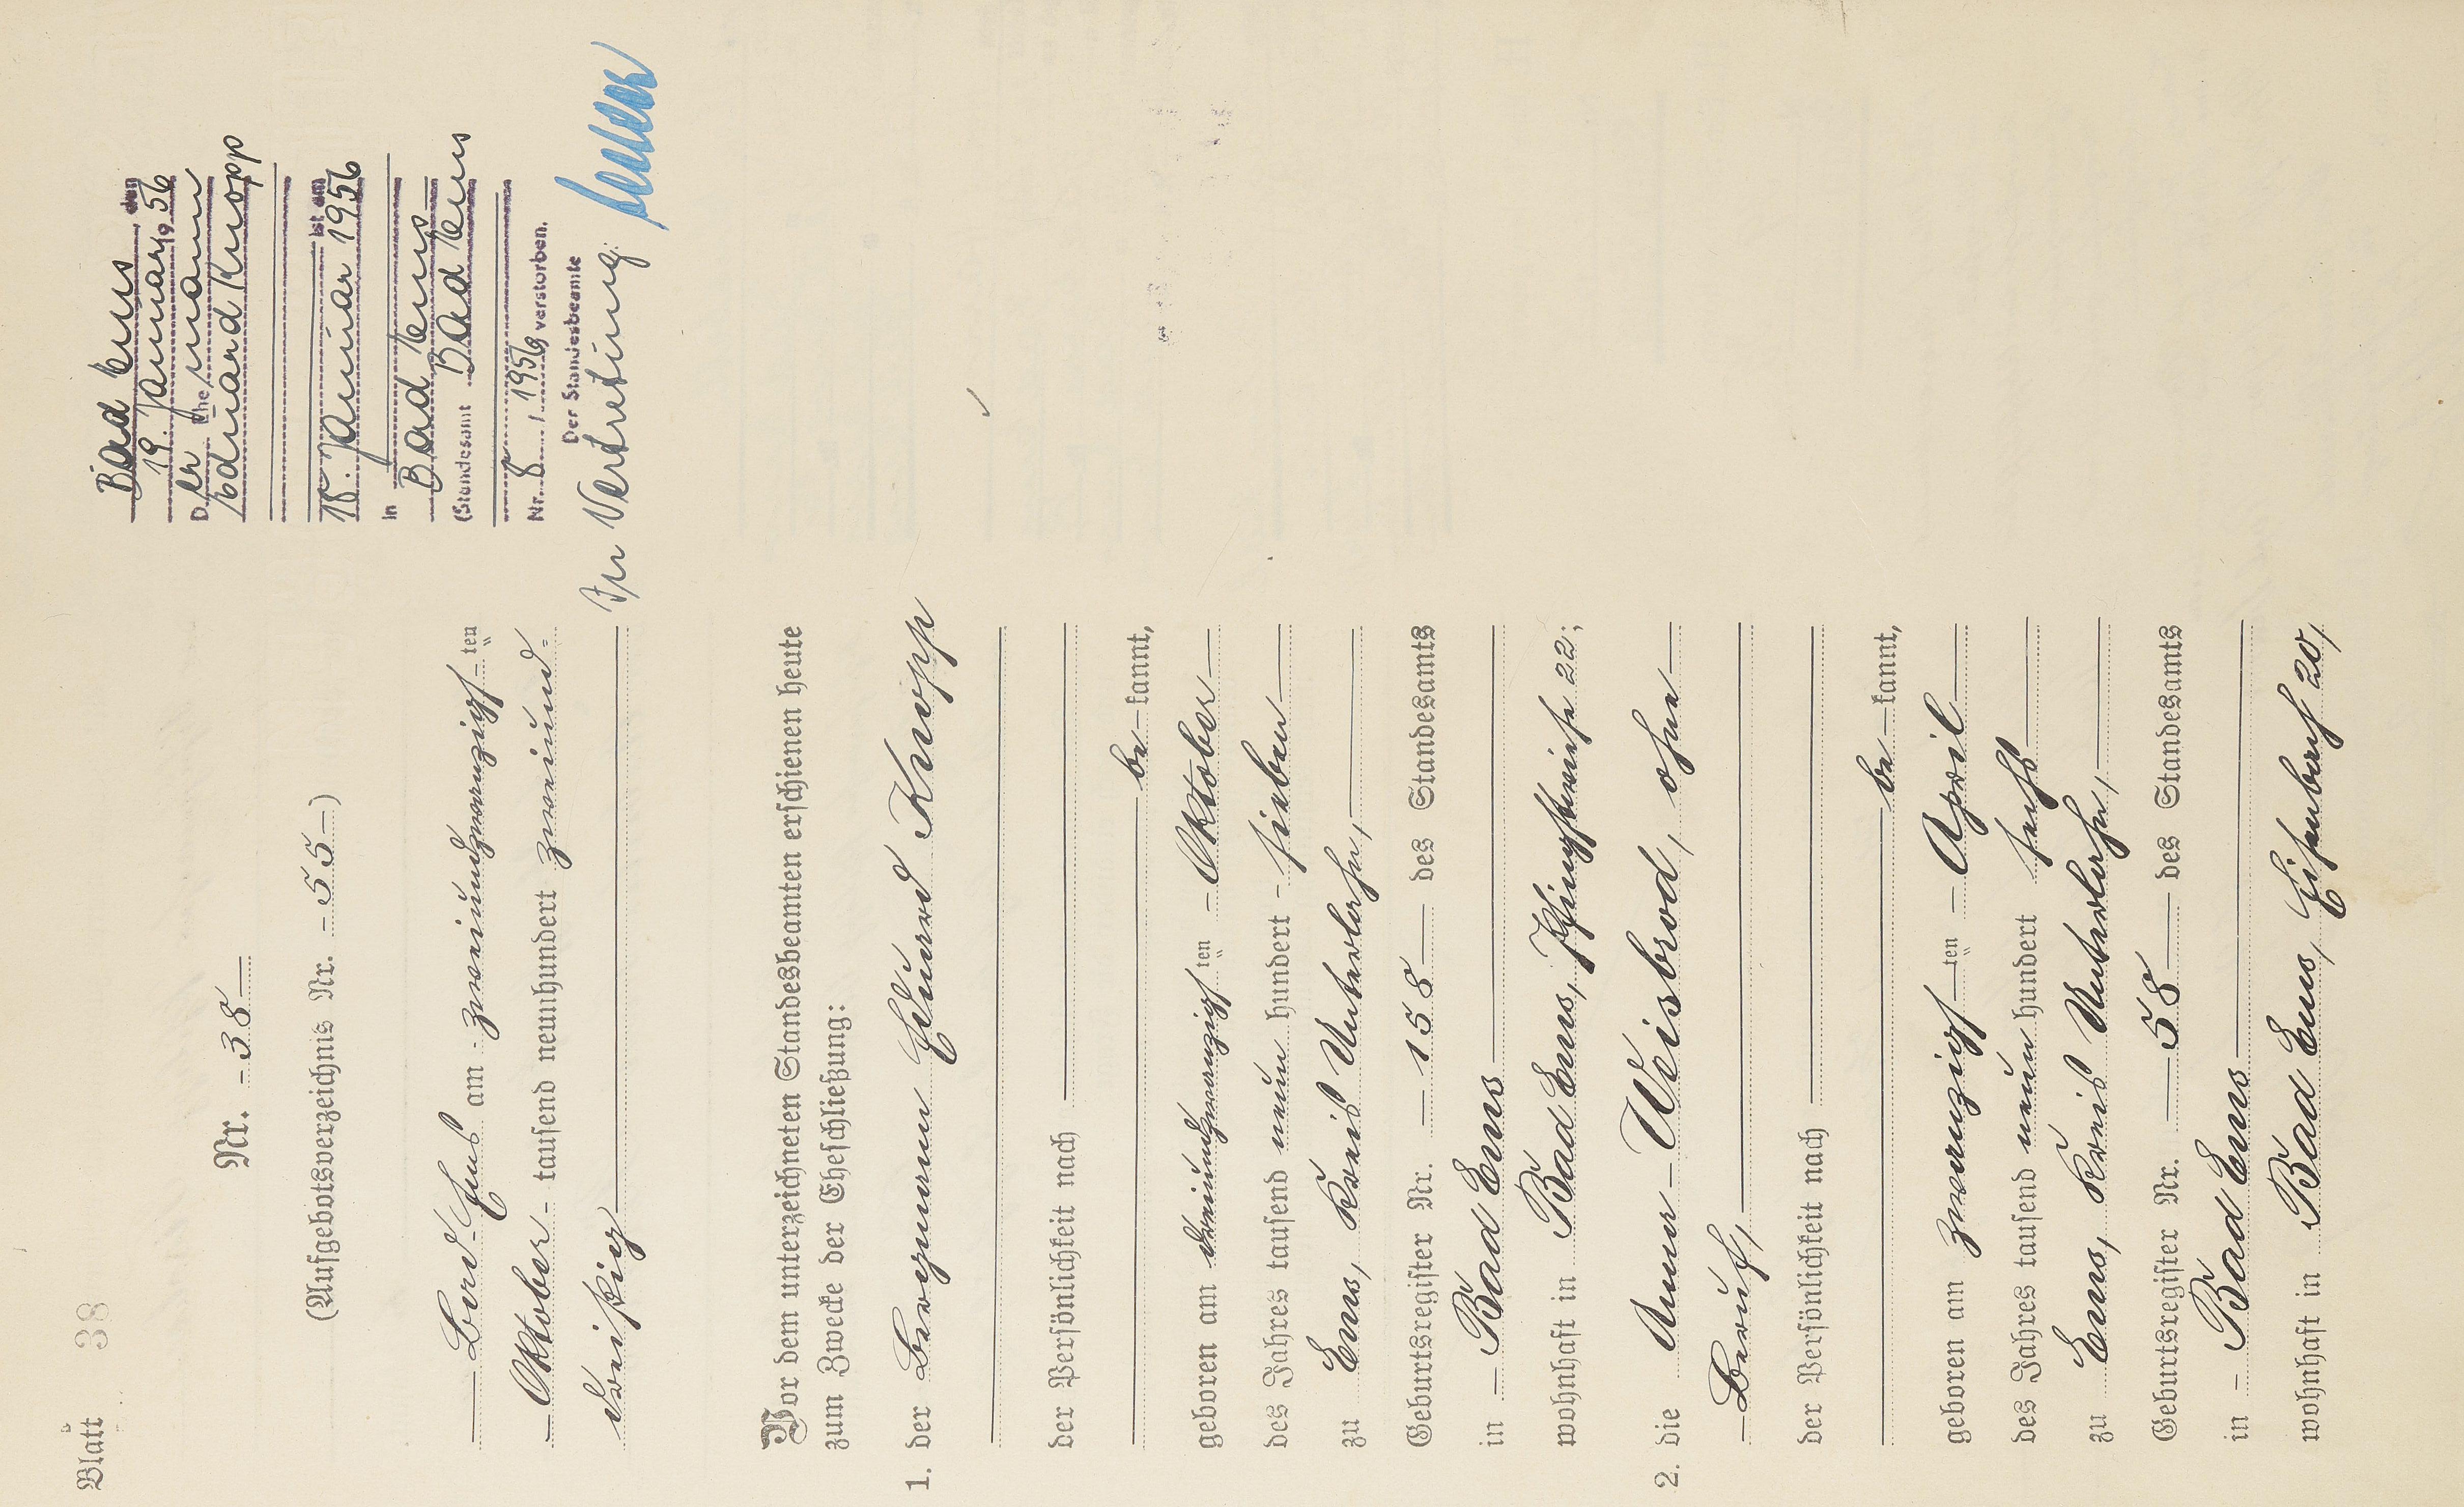 Blatt 38
Nr. - 38 -
(Aufgebotsverzeichnis Nr. - 55 -)
Bad Ems, den
19. Januar 1956
Der Ehemann
Eduard Knopp
ist am
18. Januar 1956
in Bad Ems
(Standesamt Bad Ems
Nr. 8 / 1956) verstorben.
Der Standesbeamte
In Vertretung:
Bad Ems am - zweiundzwanzigsten
Oktober - tausend neunhundert zweiund=
dreißig
Vor dem unterzeichneten Standesbeamten erschienen heute
zum Zwecke der Eheschließung:
1. der Bergmann Eduard Knopp
der Persönlichkeit nach
be kannt,
geboren am dreiundzwanzigsten - Oktober
des Jahres tausend neun hundert - sieben
zu Ems, Kreis Unterlahn,
Geburtsregister Nr. 158 des Standesamts
in - Bad Ems
wohnhaft in Bad Ems, Pfingstwiese 22;
2. die Anna - Weisbrod, ohne
Beruf,
der Persönlichkeit nach
be kannt,
geboren am zwanzigsten - April
des Jahres tausend neun hundert sechs
zu Ems, Kreis Unterlahn,
Geburtsregister Nr. 58 des Standesamts
in - Bad Ems
wohnhaft in Bad Ems, Eisenbach 20,